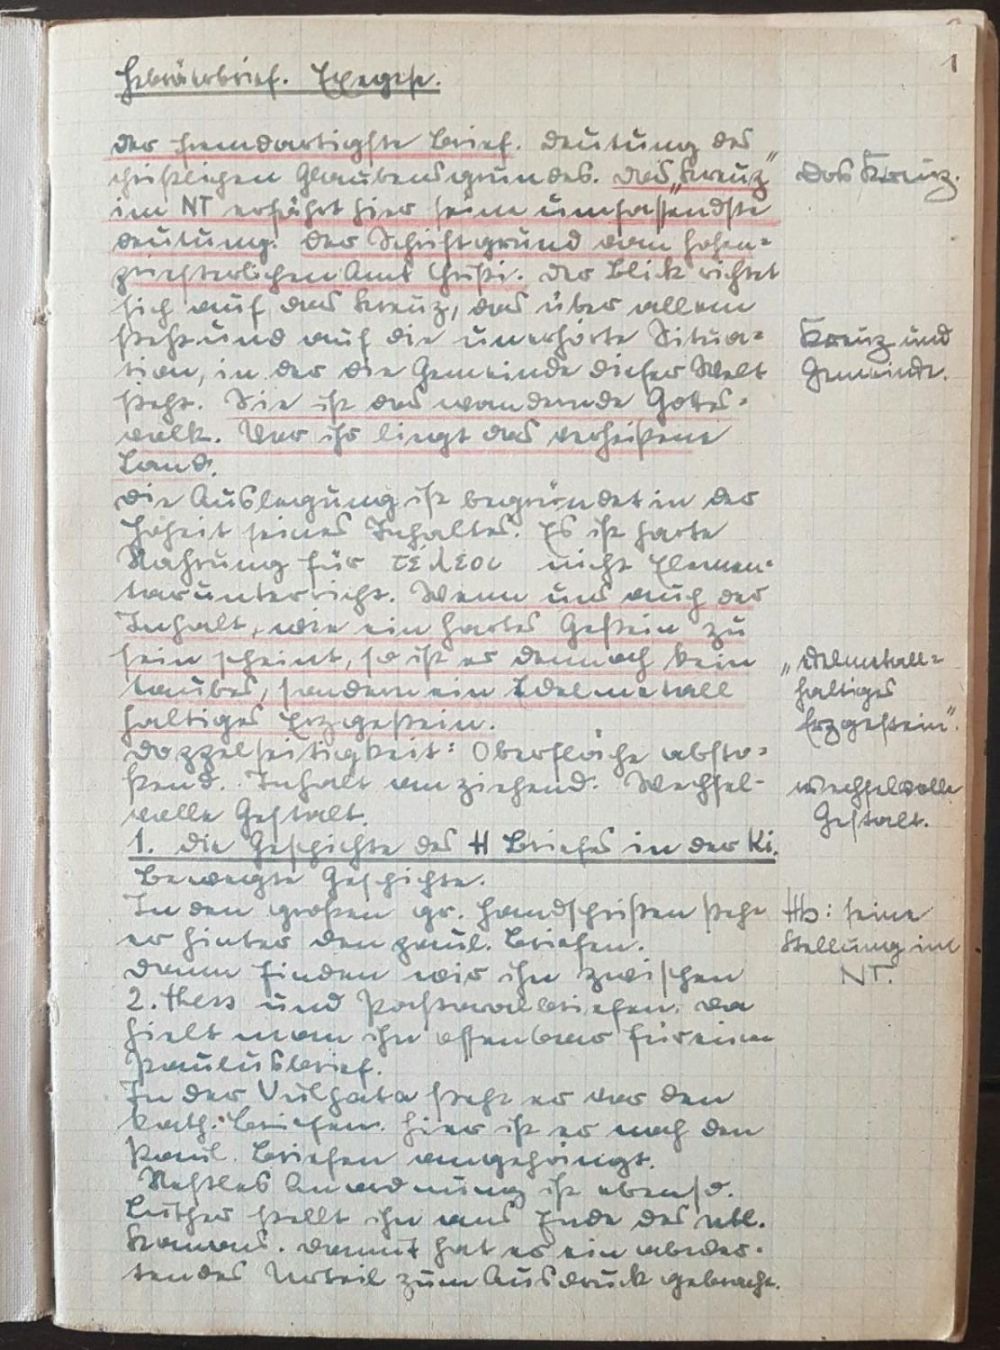 1
Hebräerbrief. Exegese.
Der fremdartigste Brief. Deutung des
christlichen Glaubensgrundes. Das „Kreuz"
im NT erfährt hier seine umfassendste
Deutung. Der Schriftgrund vom hohen=
priesterlichen Amt Christi. Der Blick richtet
sich auf das Kreuz, das über allem
steht und auf die unerhörte Situa=
tion, in der die Gemeinde dieser Welt
steht. Sie ist das wandernde Gottes=
volk. Vor ihr liegt das verheißene
Land.
Die Auslegung ist begründet in der
Hoheit seines Inhaltes. Es ist harte
Nahrung für τέλεοι nicht Elemen=
tarunterricht. Wenn uns auch der
Inhalt, wie ein hartes Gestein zu
sein scheint, so ist es dennoch kein
taubes, sondern ein Edelmetall
haltiges Erzgestein.
Doppelseitigkeit: Oberfläche absto=
ßend. Inhalt anziehend. Wechsel-
volle Gestalt.
1. Die Geschichte des H Briefes in der Ki.
Bewegte Geschichte.
In den großen gr. Handschriften steht
er hinter den paul. Briefen.
Dann finden wir ihn zwischen
2. Thess und Pastoralbriefen. Da
hielt man ihn offenbar für einen
Paulusbrief.
In der Vulgata steht er vor den
kath. Briefen. Hier ist er nach den
Paul. Briefen angehängt.
Nestles Anordnung ist ebenso.
Luther stellt ihn ans Ende des ntl.
Kanons. Damit hat er ein abwer=
tendes Urteil zum Ausdruck gebracht.
Das Kreuz.
Kreuz und
Gemeinde.
„Edelmetall=
haltiges
Erzgestein".
wechselvolle
Gestalt.
Hb: seine
Stellung im
NT.